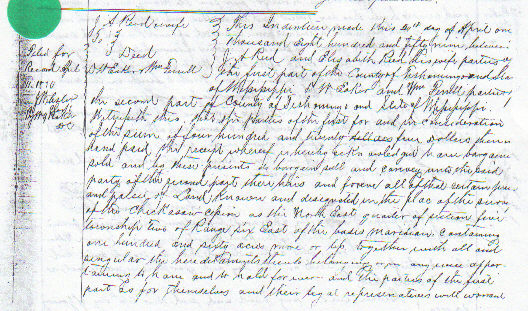 J A Reid & wife
To
Deed
D W Eaker & Wm Terrell
Filed for
Record
11. 1870
This Indenture made this 21st day of April one
thousand Eight hundred and fifty nine between
J A Reid and Elizabeth Reid his wife parties of
the first part of the County of Tishomingo and State
of Mississippi, D W Eaker and Wm Terrell parties
the second part of County of Tishomingo and State of Mississippi
Witnesseth this, that the parties of the first for and in consideration
of the sum of four hundred and twenty dollars four dollars them in
hand paid, the receipt whereof is hereby acknowledged have bargained
sold and by these presents do bargain sell and convey unto the said
party of the second part their heirs and forever all of that certain piece
and parcel of Land known and designated in the plac of the survey
of the Chickasaw Cession as the North East quarter of section five
township two of Range Six East of the basis meridian containing
one hundred and sixty acres more or less together with all and
singular the hereditaments thereto belonging or in any wise apper
taining to have and to hold forever and the parties of the first
part do for themselves and their legal representatives will warrant